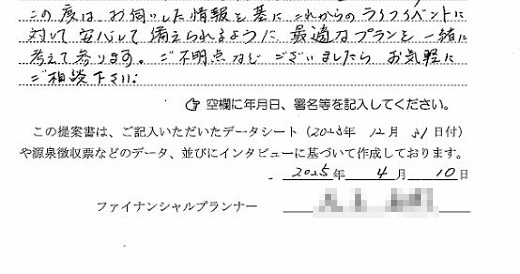 この度は、お伺いした情報を基に これからのライフイベントに
対して 安心して 備えられるように、最適なプランを 一緒に
考えて参ります。ご不明点など ございましたら お気軽に
ご相談下さい。
空欄に年月日、署名等を記入してください。
この提案書は、ご記入いただいたデータシート（2023年 12月 31日付）
や源泉徴収票などのデータ、並びにインタビューに基づいて作成しております。
2025年 4月 10日
ファイナンシャルプランナー